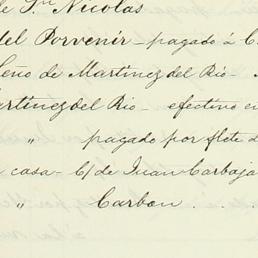 de Sn Nicolas
del Porvenir - pagado á C
Ceño de Martinez del Rio -
artinez del Rio - efectivo en
" pagado por flete d
casa - C/ de Juan Carbaja
" Carbon . . .